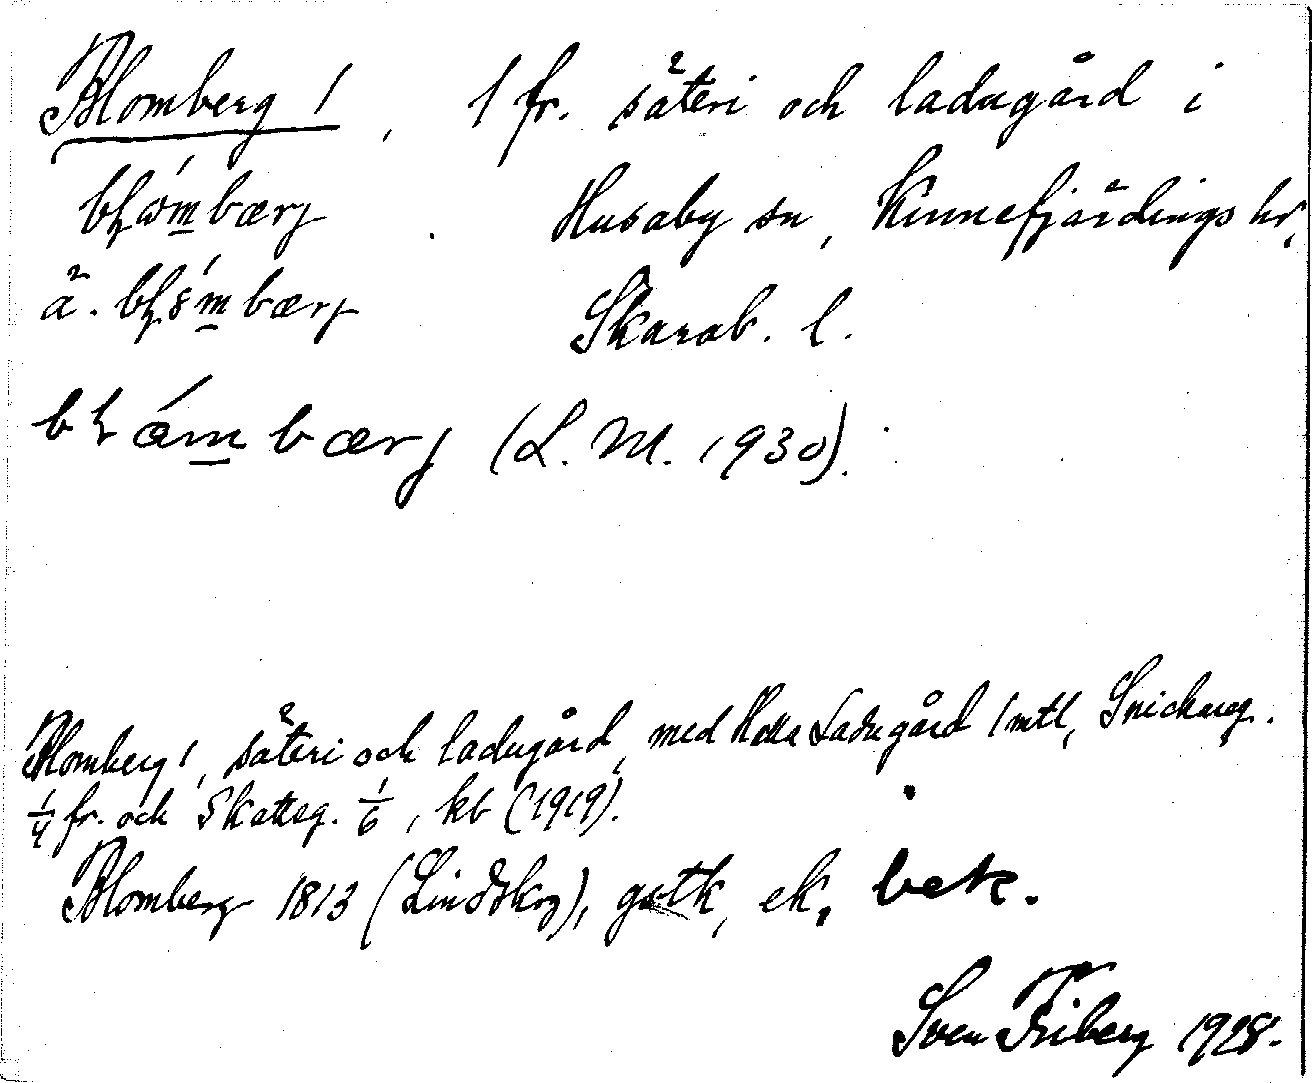 Blomberg 1, 1 fr. säteri och ladugård i
Husaby sn, Kinnefjärdings hd,
Skarab. l.
ä.
(L. M. 1930).
Blomberg 1, säteri och ladugård, med Hella Ladugård 1 mtl, Snickareg.
1/4 fr. och Skatteg. 1/6, kb (1919).
Blomberg 1813 (Lindskog), gatk, ek, bek.
Sven Friberg 1928.